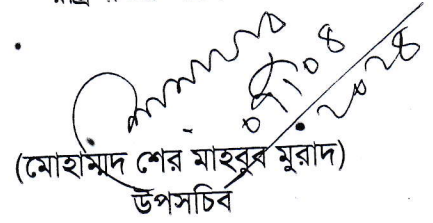 ০৭।০৪।২০২৪
(মোহাম্মদ শের মাহবুব মুরাদ)
উপসচিব